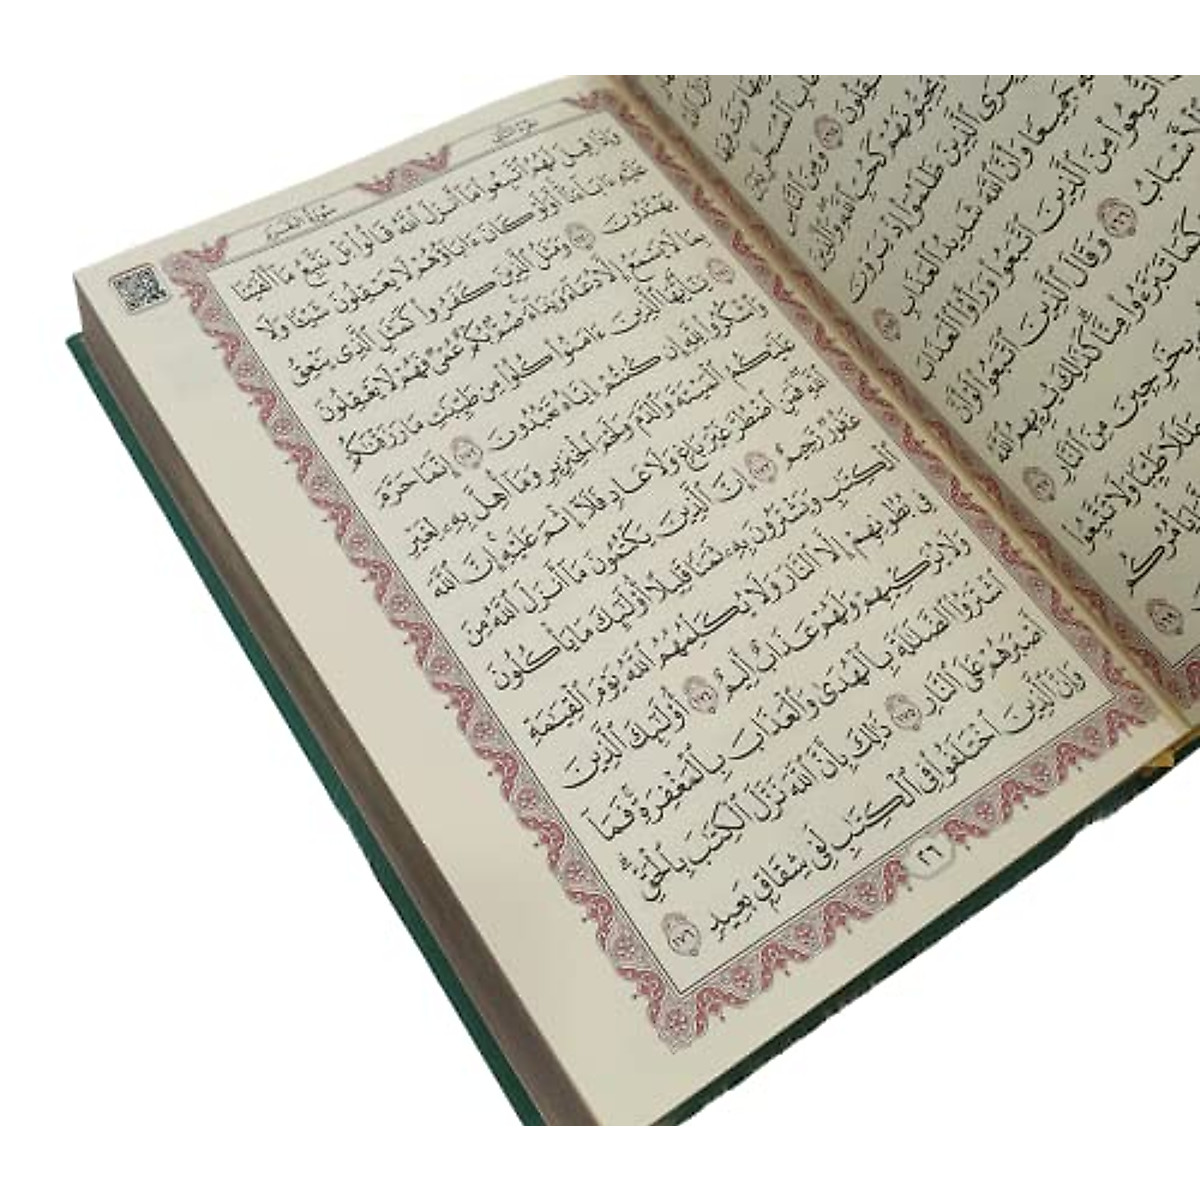 يُحِبُّونَهُمْ كَحُبِّ ٱللَّهِ وَٱلَّذِينَ
يَرَى ٱلَّذِينَ ظَلَمُوٓا۟ إِذْ يَرَوْنَ
جَمِيعًا وَأَنَّ ٱللَّهَ شَدِيدُ ٱلْعَذَابِ ١٦٥
ٱتُّبِعُوا۟ مِنَ ٱلَّذِينَ ٱتَّبَعُوا۟ وَرَأَوُا۟ ٱلْعَذَابَ
ٱلْأَسْبَابُ ١٦٦ وَقَالَ ٱلَّذِينَ ٱتَّبَعُوا۟ لَوْ أَنَّ
كَمَا تَبَرَّءُوا۟ مِنَّا كَذَٰلِكَ يُرِيهِمُ ٱللَّهُ
بِخَٰرِجِينَ مِنَ ٱلنَّارِ ١٦٧
حَلَٰلًا طَيِّبًا وَلَا تَتَّبِعُوا۟
يَأْمُرُكُم
١٦٩
سُورَةُ البَقَرَةِ
وَإِذَا قِيلَ لَهُمُ ٱتَّبِعُوا۟ مَآ أَنزَلَ ٱللَّهُ قَالُوا۟ بَلْ نَتَّبِعُ مَآ أَلْفَيْنَا
عَلَيْهِ ءَابَآءَنَآ أَوَلَوْ كَانَ ءَابَآؤُهُمْ لَا يَعْقِلُونَ شَيْـًٔا وَلَا
يَهْتَدُونَ ١٧٠ وَمَثَلُ ٱلَّذِينَ كَفَرُوا۟ كَمَثَلِ ٱلَّذِى يَنْعِقُ
بِمَا لَا يَسْمَعُ إِلَّا دُعَآءً وَنِدَآءً صُمٌّۢ بُكْمٌ عُمْىٌ فَهُمْ لَا يَعْقِلُونَ
١٧١ يَٰٓأَيُّهَا ٱلَّذِينَ ءَامَنُوا۟ كُلُوا۟ مِن طَيِّبَٰتِ مَا رَزَقْنَٰكُمْ
وَٱشْكُرُوا۟ لِلَّهِ إِن كُنتُمْ إِيَّاهُ تَعْبُدُونَ ١٧٢ إِنَّمَا حَرَّمَ
عَلَيْكُمُ ٱلْمَيْتَةَ وَٱلدَّمَ وَلَحْمَ ٱلْخِنزِيرِ وَمَآ أُهِلَّ بِهِۦ لِغَيْرِ
ٱللَّهِ فَمَنِ ٱضْطُرَّ غَيْرَ بَاغٍ وَلَا عَادٍ فَلَآ إِثْمَ عَلَيْهِ إِنَّ ٱللَّهَ
غَفُورٌ رَّحِيمٌ ١٧٣ إِنَّ ٱلَّذِينَ يَكْتُمُونَ مَآ أَنزَلَ ٱللَّهُ مِنَ
ٱلْكِتَٰبِ وَيَشْتَرُونَ بِهِۦ ثَمَنًا قَلِيلًا أُو۟لَٰٓئِكَ مَا يَأْكُلُونَ
فِى بُطُونِهِمْ إِلَّا ٱلنَّارَ وَلَا يُكَلِّمُهُمُ ٱللَّهُ يَوْمَ ٱلْقِيَٰمَةِ
وَلَا يُزَكِّيهِمْ وَلَهُمْ عَذَابٌ أَلِيمٌ ١٧٤ أُو۟لَٰٓئِكَ ٱلَّذِينَ
ٱشْتَرَوُا۟ ٱلضَّلَٰلَةَ بِٱلْهُدَىٰ وَٱلْعَذَابَ بِٱلْمَغْفِرَةِ فَمَآ
أَصْبَرَهُمْ عَلَى ٱلنَّارِ ١٧٥ ذَٰلِكَ بِأَنَّ ٱللَّهَ نَزَّلَ ٱلْكِتَٰبَ بِٱلْحَقِّ
وَإِنَّ ٱلَّذِينَ ٱخْتَلَفُوا۟ فِى ٱلْكِتَٰبِ لَفِى شِقَاقٍۭ بَعِيدٍ ١٧٦
٢٦